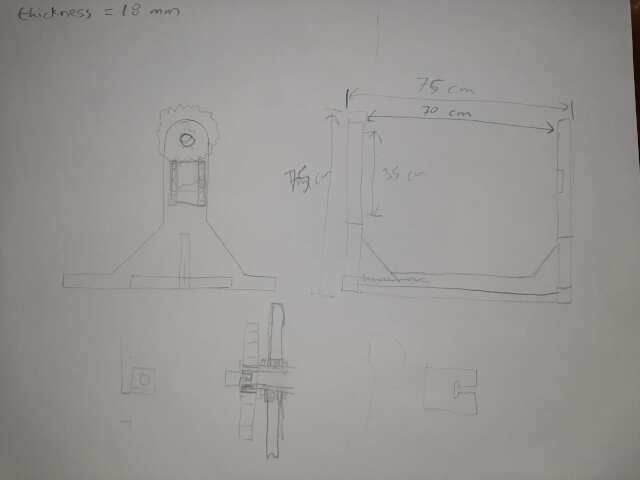 thickness = 18 mm
75 cm
70 cm
35 cm
cm